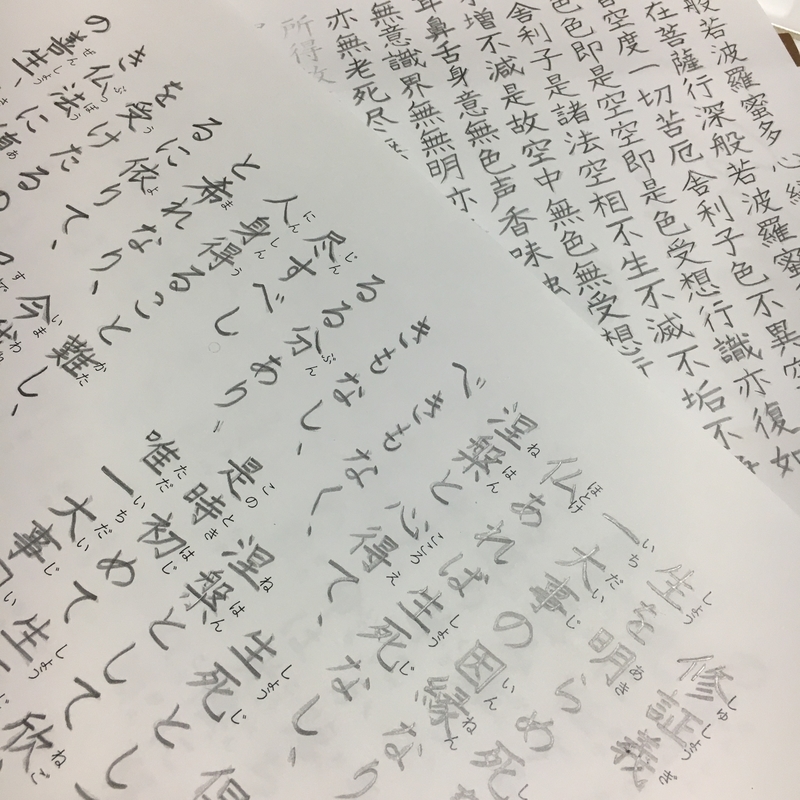 般若波羅蜜多心経
在菩薩行深般若波羅蜜
空度一切苦厄舎利子色不異空
色色即是空空即是色受想行識亦復如
舎利子是諸法空相不生不滅不垢不
増不減是故空中無色無受想
耳鼻舌身意無色声香味
無意識界無無明亦
亦無老死尽
所得故
修証義
生を明らめ死
一大事の因縁なり
仏あれば生死なし、
涅槃と心得て、生死とし
べきもなく、涅槃として欣
きもなし、是時初めて生
るる分あり、唯一大事
尽すべし
人身得ること難し、
と希れなり、今我
るに依りて、
を受けたるの
き仏法に
の善生、